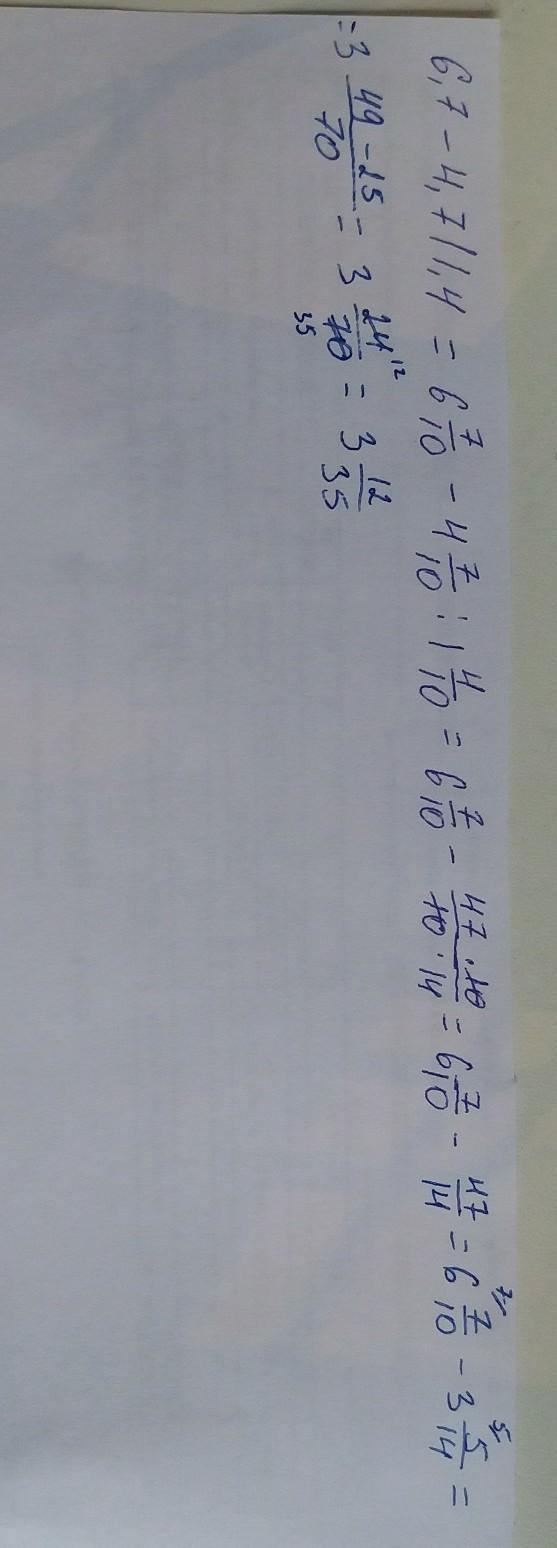 6,7 - 4,7/1,4 = 6 7/10 - 4 7/10 : 1 4/10 = 6 7/10 - 47·10/10·14 = 6 7/10 - 47/14 = 6 7/10 7 - 3 5/14 5 =
= 3 49-25/70 = 3 24/70 12 35 = 3 12/35